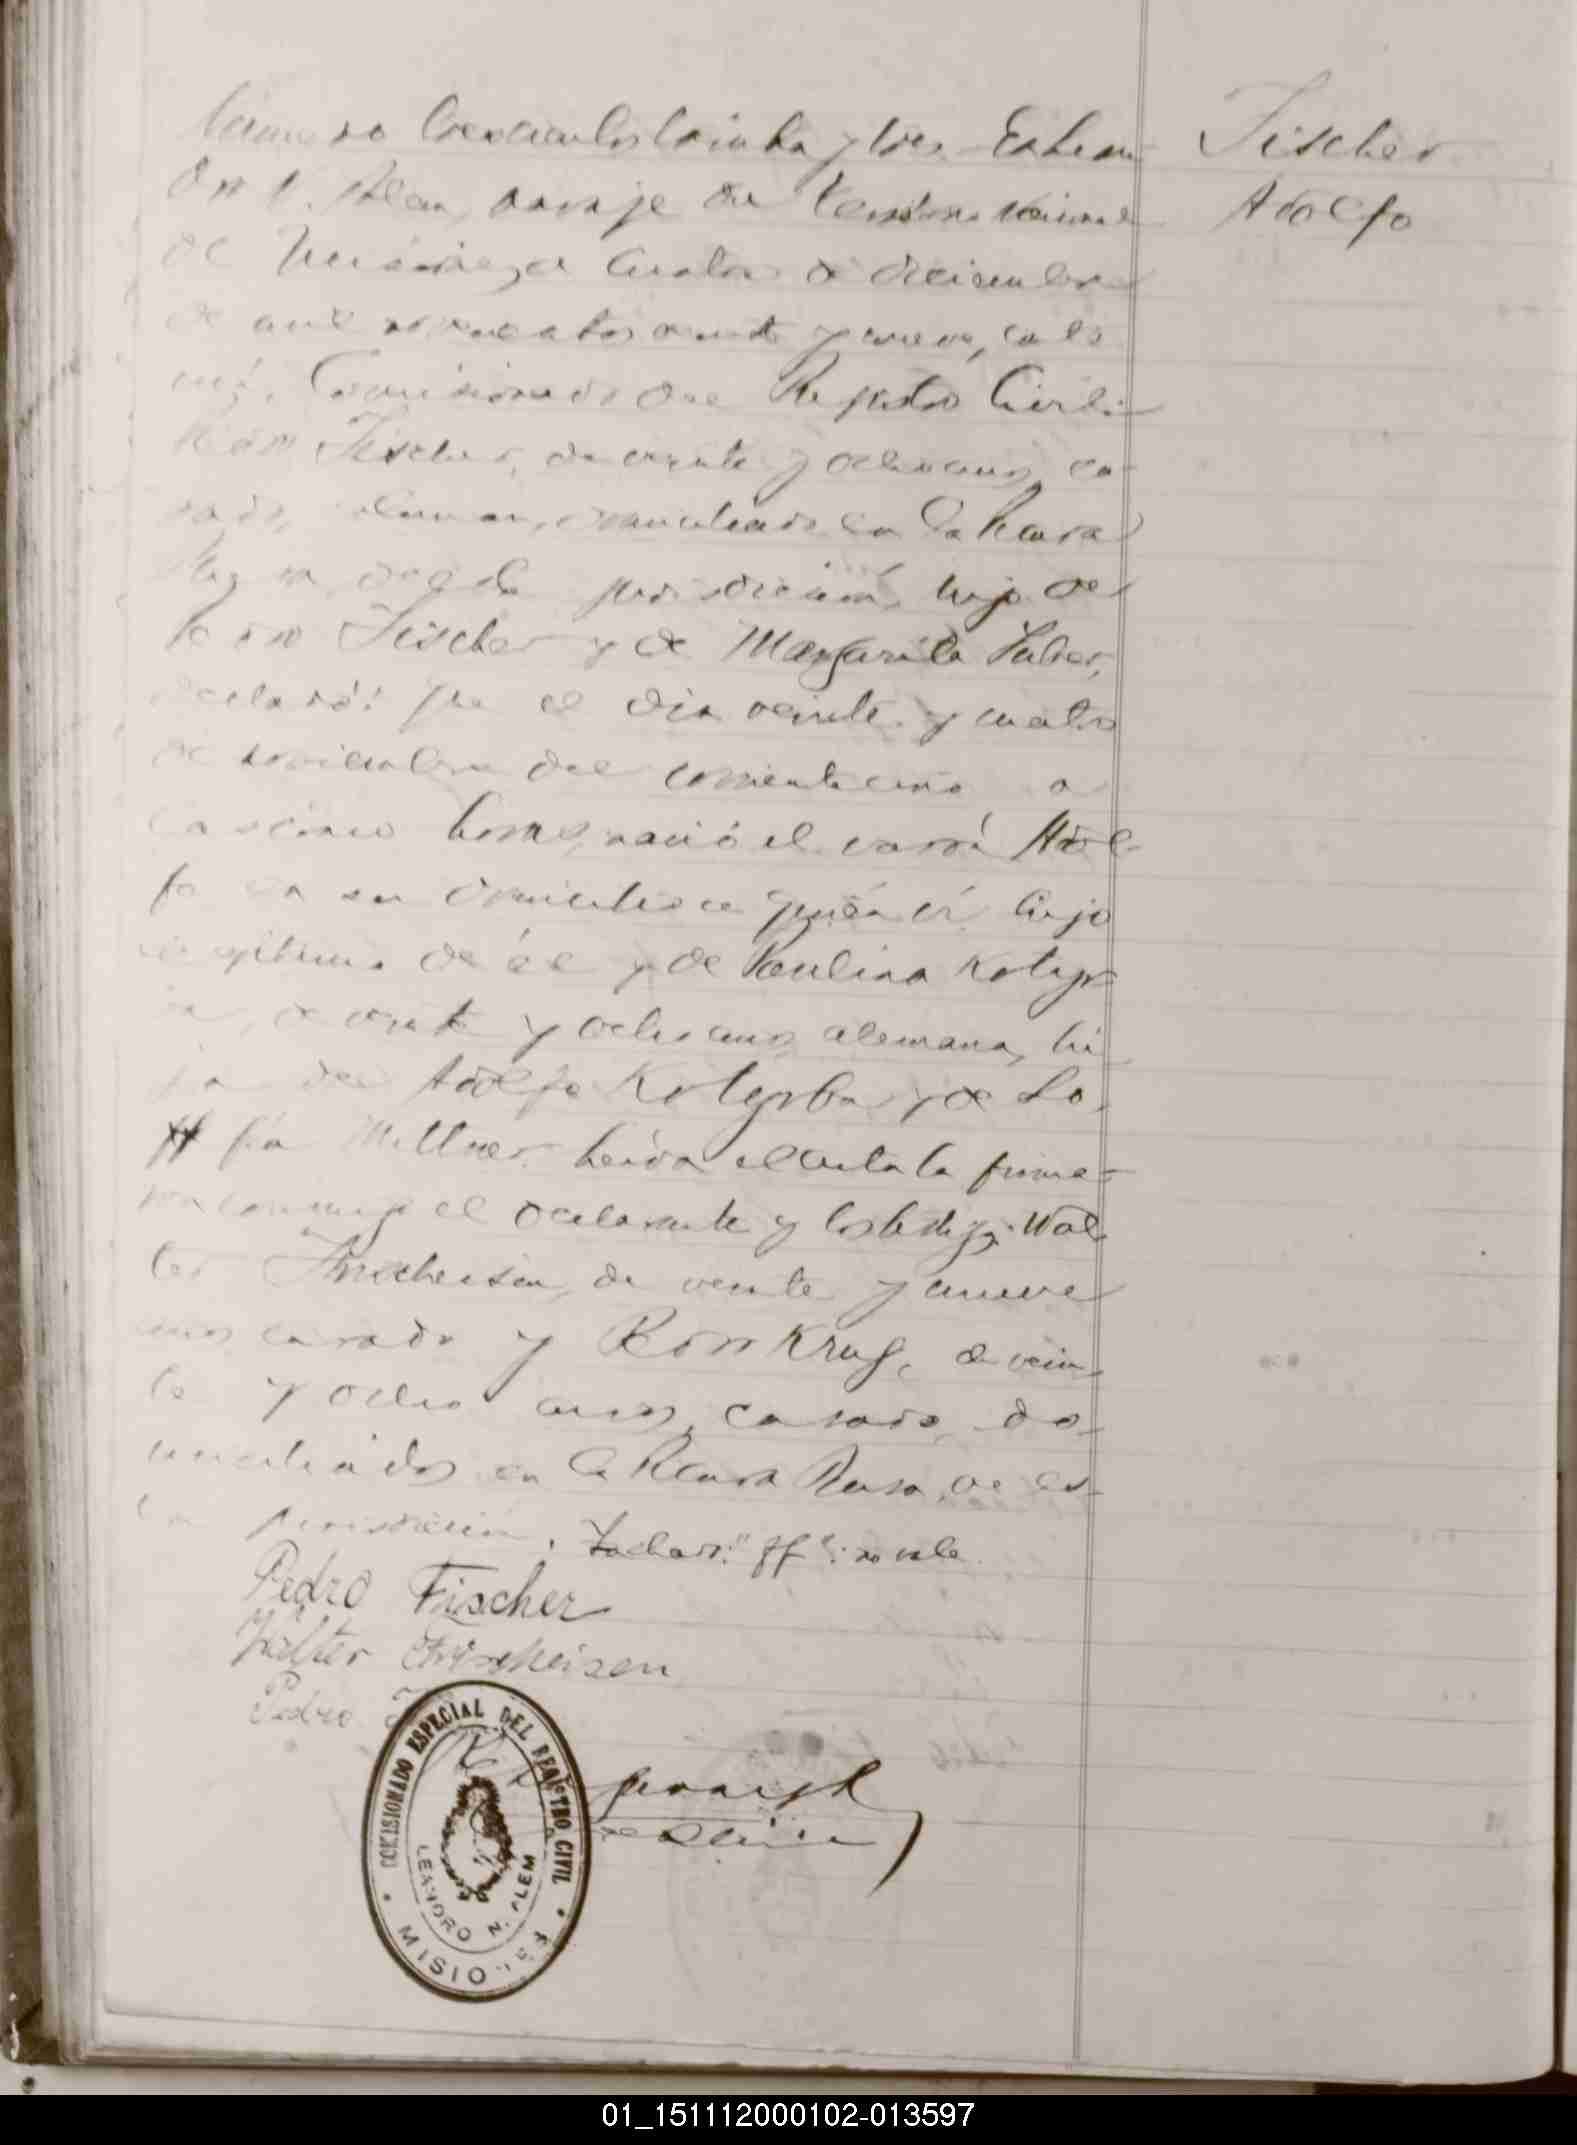 Número trescientos treinta y tres. En Lean-
dro N. Alem, paraje del Territorio Nacional
de Misiones, a cuatro de diciembre
de mil novecientos veinte y nueve, ante
mí, Comisionado del Registro Civil:
Pedro Fischer, de veinte y ocho anos, ca-
sado, aleman, domiciliado en La Picara
de esta jurisdicción, hijo de
Pedro Fischer y de Margarita Huber,
declaró: Que el día veinte y cuatro
de noviembre del corriente ano a
las cinco horas, nació el varón Adol-
fo en su domicilio a quién vi hijo
legítimo de él y de Paulina Kotyr-
ba, de veinte y ocho anos, alemana, hi-
ja de Adolfo Kotyrba y de So-
ff fía Millner. Leida el acta la firma-
ron conmigo el declarante y los testigos: Wal-
ter de veinte y nueve
anos casado y Pedro Krug, de vein-
te y ocho anos, casado, do-
miciliados en la Picara Rusa, de es-
ta jurisdicción. Tachado: "ff": no vale.
Pedro Fischer
Walter
Pedro
COMISIONADO ESPECIAL DEL REGISTRO CIVIL
LEANDRO N. ALEM
MISIONES
Fischer
Adolfo
01_151112000102-013597